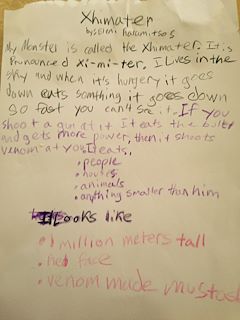 Xhimater
by
My Monster is called the Xhimater. It is
Pronounced Xi-mi-ter. I Lives in the
sky and when it's hungry it goes
down eats somthing it goes down
so fast you can't see it. If you
shoot a gun at it It eats the bullet
and gets more power, then it shoots
venom at you. It eats.
• people
• houses
• animals
• anything smaller than him
It Looks like
• 1 million meters tall
• face
• venom made